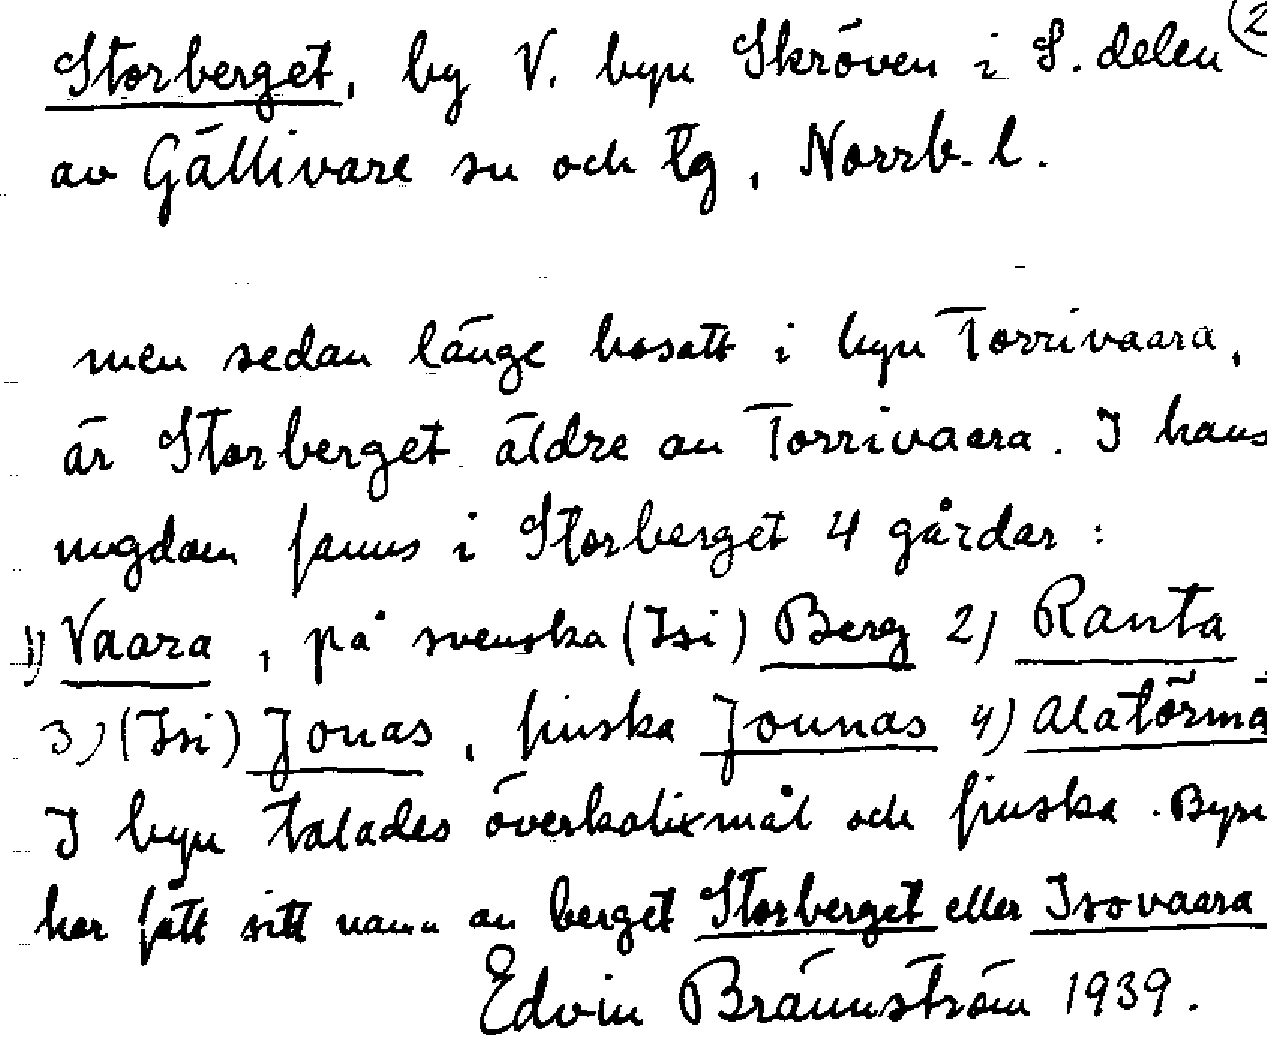 Storberget, by V. byn Skröven i S. delen 2
av Gällivare sn och tg, Norrb. l.
men sedan länge bosatt i byn Torrivaara,
är Storberget äldre än Torrivaara. I hans
ungdom fanns i Storberget 4 gårdar:
1) Vaara, på svenska (Isi) Berg 2) Ranta
3) (Isi) Jonas, finska Jounas 4) Alatörmä
I byn talades överkalixmål och finska. Byn
har fått sitt namn av berget Storberget eller Isovaara
Edvin Brännström 1939.